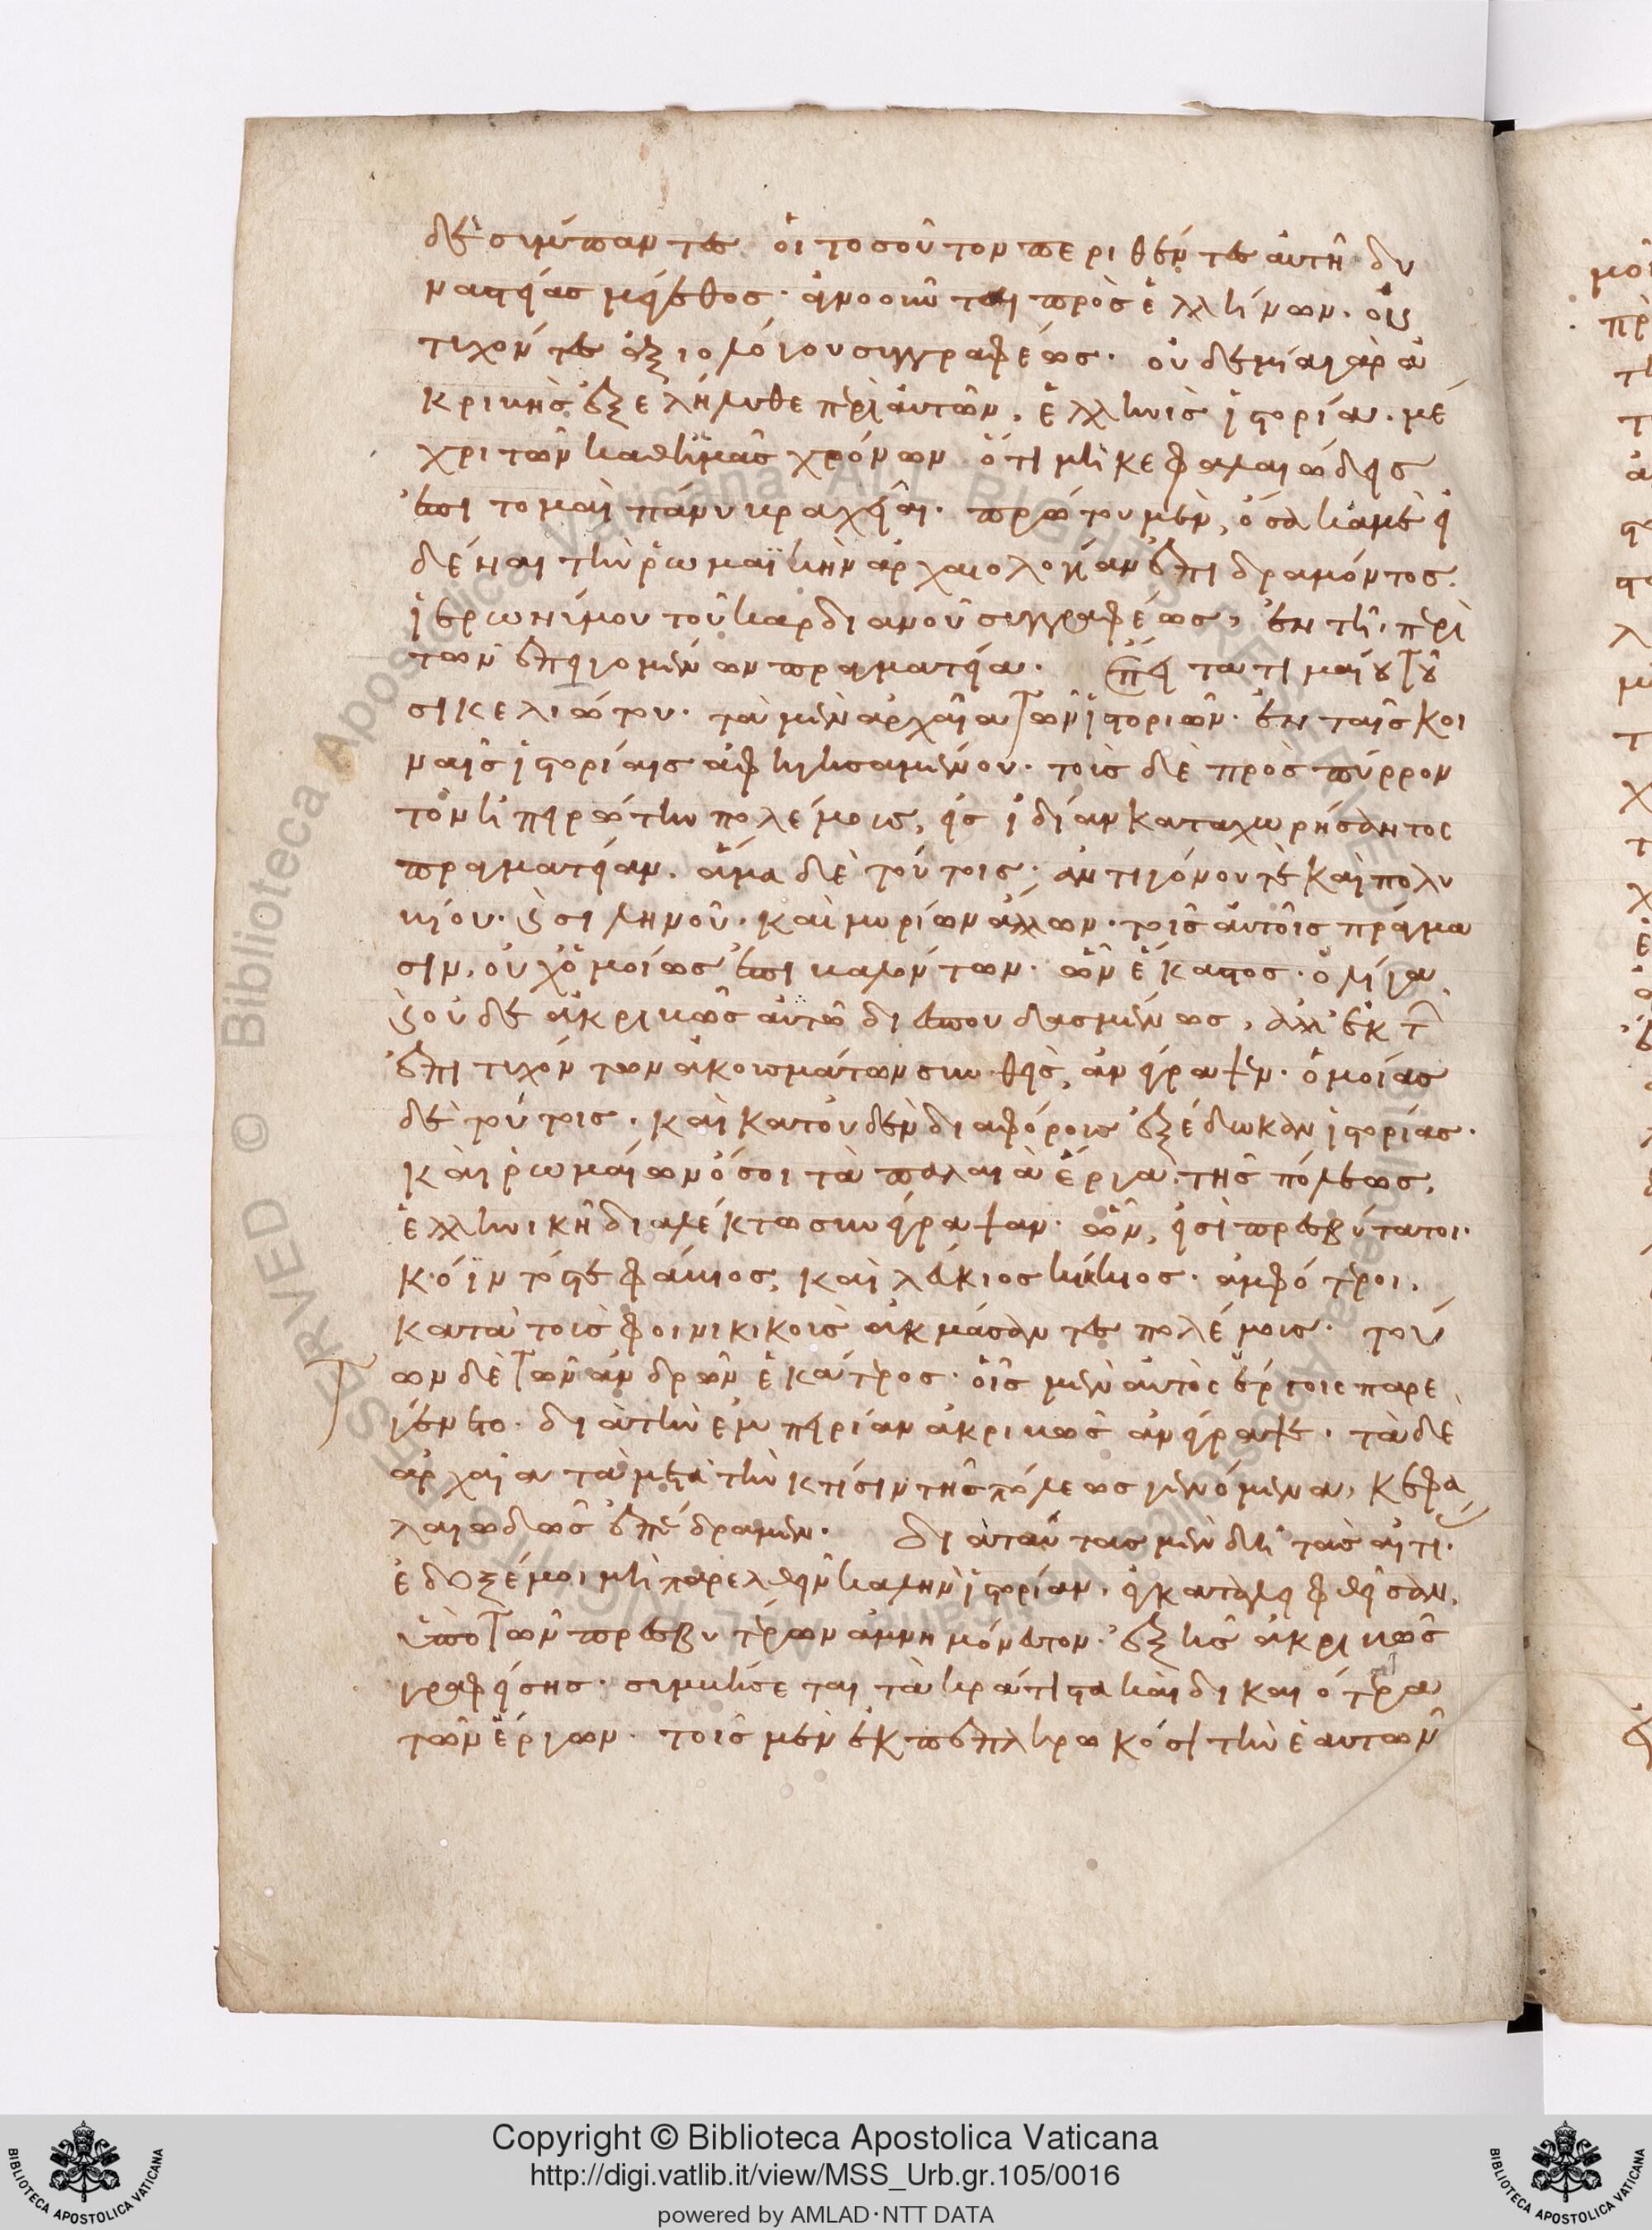 δὲ σύμπαντες οἱ τοσοῦτον περιθέντες αὐτῆ δυ
ναστείας μέγεθος· ἀγνοοῦνται πρὸς ἑλλήνων. οὐ
τυχόντες ἀξιολόγου συγγραφέως· οὐδεμία γὰρ ἀ
κριβὴς ἐξελήλυθε περὶ αὐτῶν. ἑλληνὶς ἱστορία. μέ
χρι τῶν καθ' ἡμᾶς χρόνων ὅτι μὴ κεφαλαιώδεις
ἐπιτομαὶ πάνυ βραχεῖαι. πρώτου μὲν, ὅσα κἀμὲ εἰ
δέναι τὴν ῥωμαϊκὴν ἀρχαιολογίαν ἐπιδραμόντος.
ἱερωνύμου τοῦ καρδιανοῦ συγγραφέως, ἐν τῆ περὶ
τῶν ἐπιγόνων πραγματεία. ἔπειτα τιμαίου τοῦ
σικελιώτου. τὰ μὲν ἀρχαῖα τῶν ἱστοριῶν. ἐν ταῖς κοι
ναῖς ἱστορίαις ἀφηγησαμένου. τοὺς δὲ πρὸς πύρρον
τὸν ἠπειρώτην πολέμους, εἰς ἰδίαν καταχωρήσαντος
πραγματείαν. ἅμα δὲ τούτοις· ἀντίγονός τε καὶ πολύ
βιος. καὶ σιληνοῦ. καὶ μυρίων ἄλλων. τοῖς αὐτοῖς πράγμα
σιν, οὐχ ὁμοίως ἐπιβαλόντων. ὧν ἕκαστος. ὀλίγα
καὶ οὐδὲ ἀκριβῶς αὐτῶ διεσπουδασμένως, ἀλλ' ἐκ τῶν
ἐπιτυχόντων ἀκουσμάτων συνθεὶς, ἀνέγραψεν. ὁμοίας
δὲ τούτοις. καὶ κατ' οὐδὲν διαφόρους ἐξέδωκαν ἱστορίας.
καὶ ῥωμαίων ὅσοι τὰ παλαιὰ ἔργα τῆς πόλεως,
ἑλληνικῆ διαλέκτω συνέγραψαν. ὧν, εἰσὶ πρεσβύτατοι.
κόϊντός τε φάβιος, καὶ λεύκιος κίγκιος. ἀμφότεροι,
κατὰ τοὺς φοινικικοὺς ἀκμάσαντες πολέμους. τού
των δὲ τῶν ἀνδρῶν ἑκάτερος. οἷς μὲν αὐτὸς ἔργοις παρε
γένετο. διὰ τὴν ἐμπειρίαν ἀκριβῶς ἀνέγραψε. τὰ δὲ
ἀρχαῖα τὰ μετὰ τὴν κτίσιν τῆς πόλεως γενόμενα, κεφα
λαιωδῶς ἐπέδραμεν. διὰ ταύτας μὲν δὴ τὰς αἰτί.
ἔδοξέ μοι μὴ παρελθεῖν καλὴν ἱστορίαν. ἐγκαταλειφθεῖσαν,
ὑπὸ τῶν πρεσβυτέρων ἀμνημόνευτον. ἐξ ἧς ἀκριβῶς
γραφείσης. συμβήσεται τὰ κράτιστα καὶ δικαιότατα
τῶν ἔργων. τοῖς μὲν ἐκπεπληρωκόσι τὴν ἑαυτῶν
Copyright © Biblioteca Apostolica Vaticana
http://digi.vatlib.it/view/MSS_Urb.gr.105/0016
powered by AMLAD·NTT DATA
BIBLIOTECA APOSTOLICA VATICANA
BIBLIOTECA APOSTOLICA VATICANA